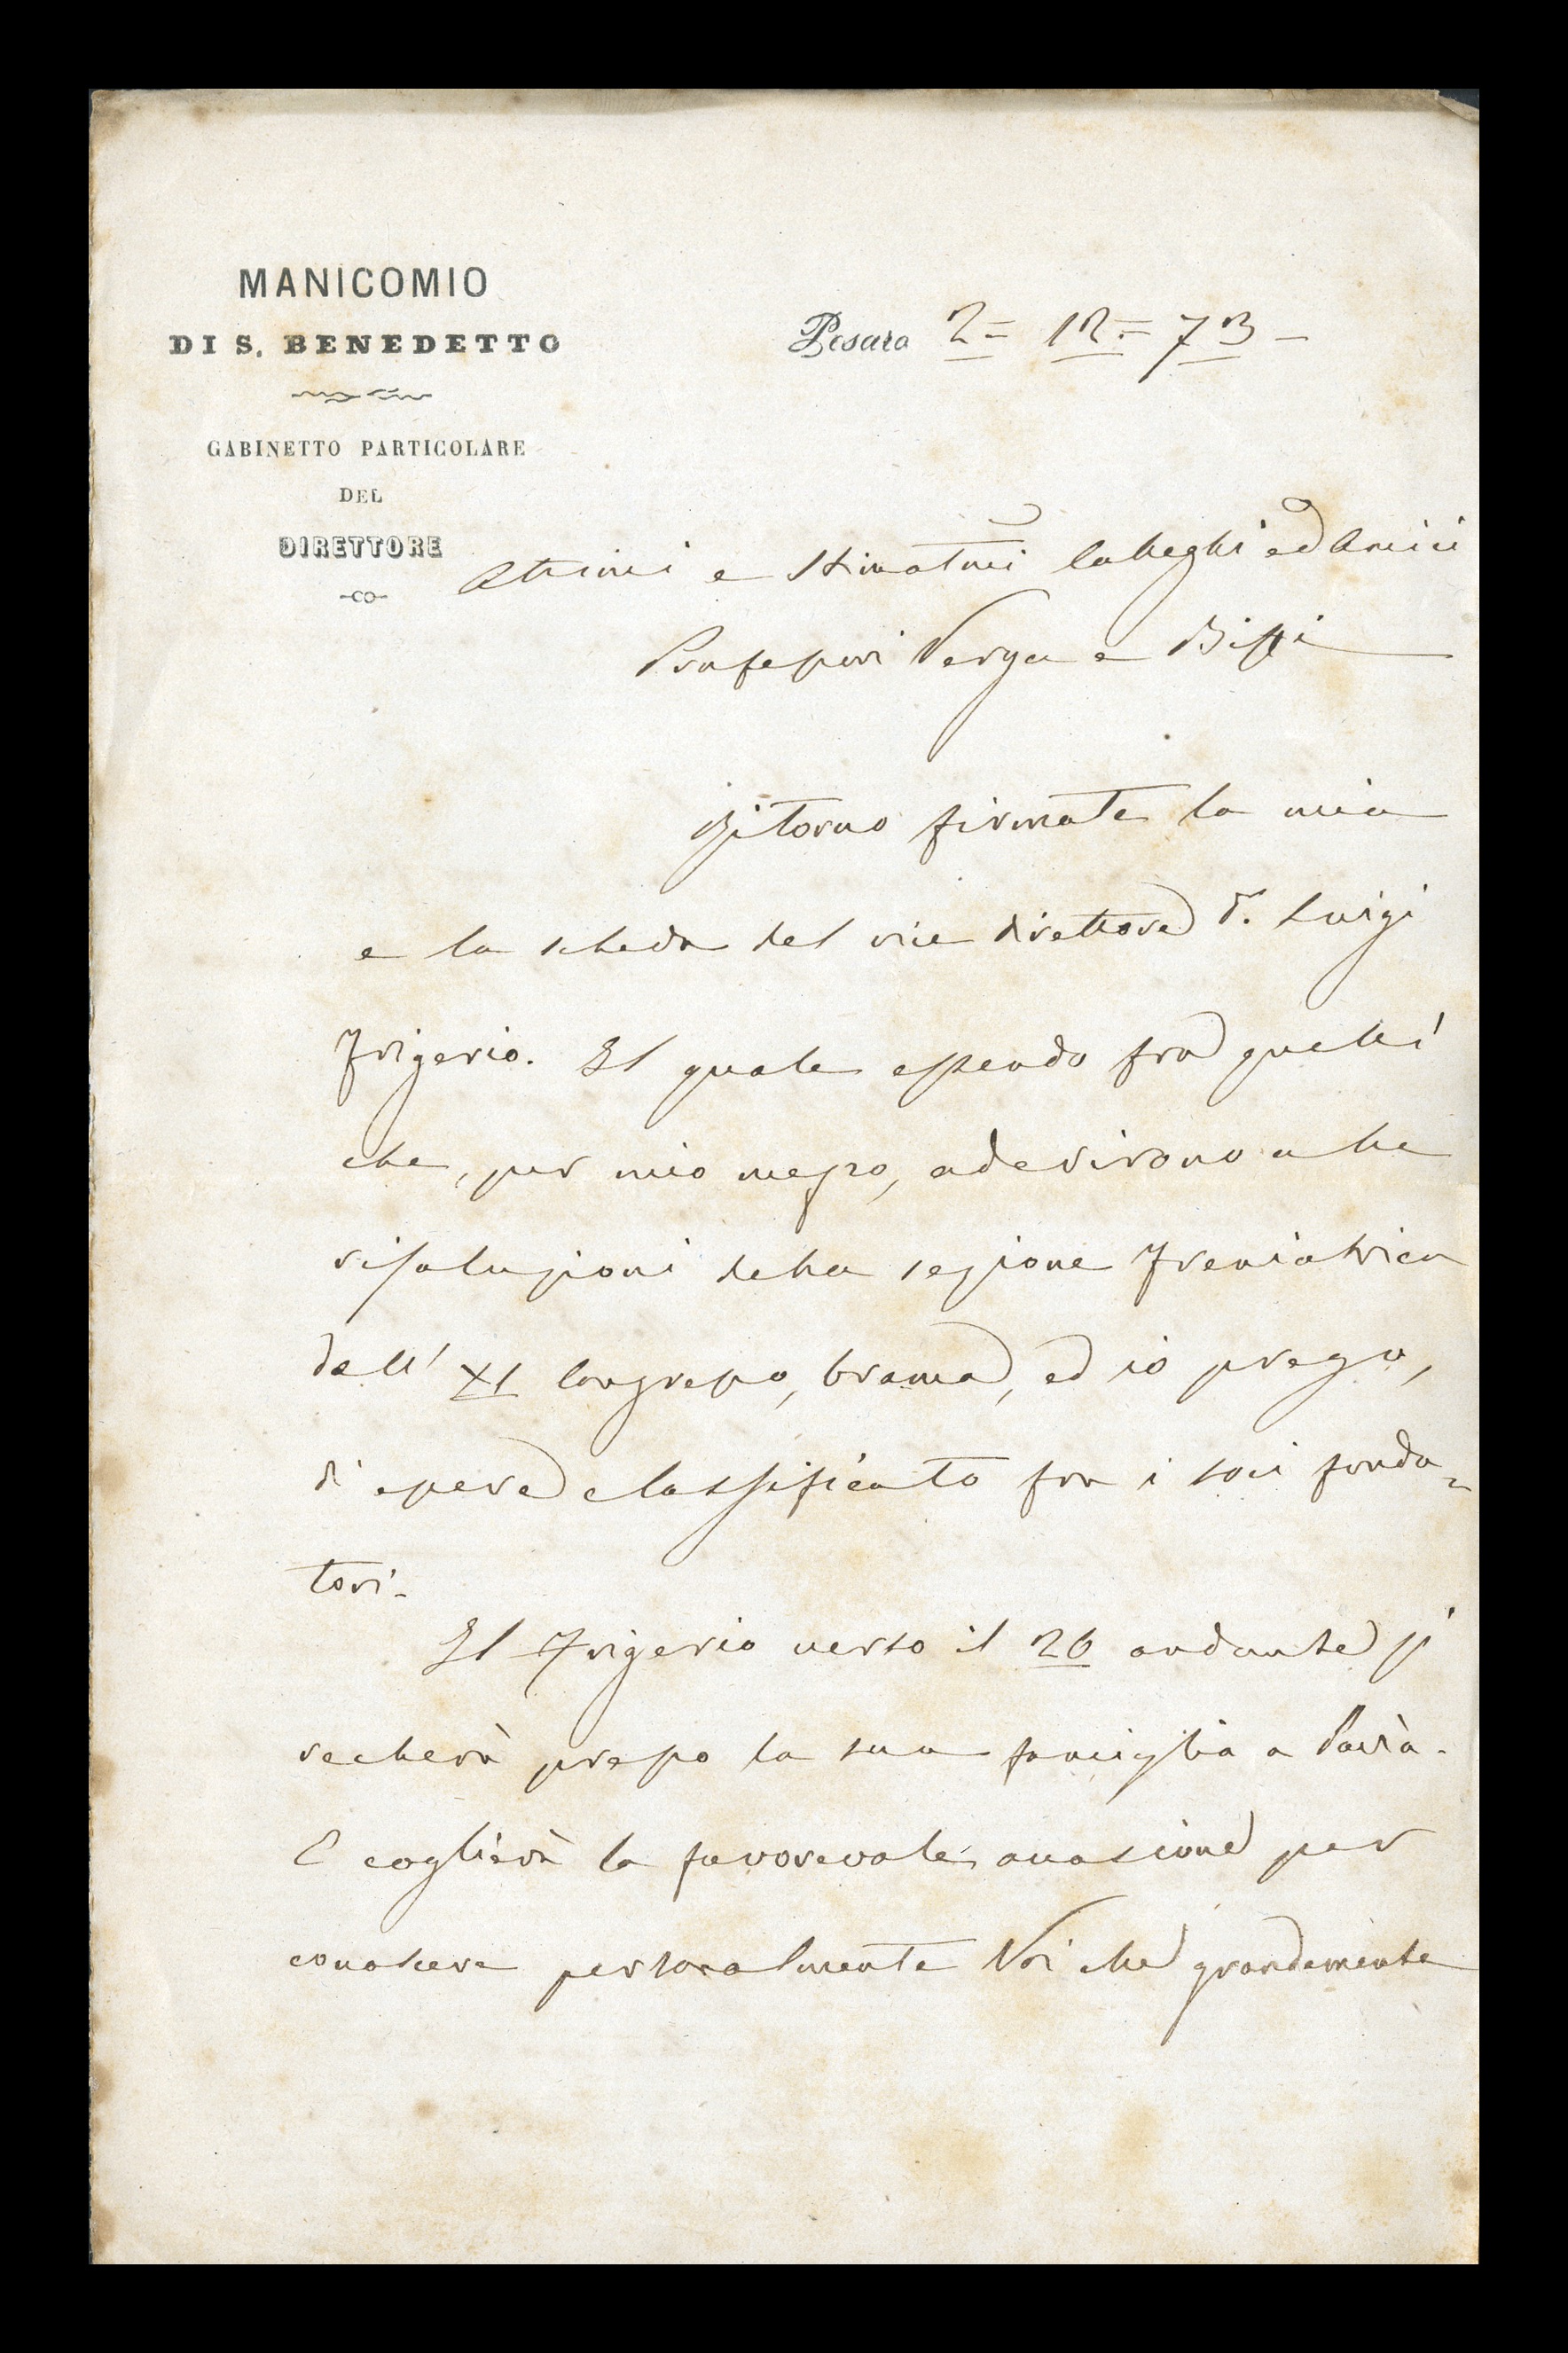 MANICOMIO
DI S. BENEDETTO
GABINETTO PARTICOLARE
DEL
DIRETTORE
Pesaro 2 = 12 = 73 -
Ottimi e Stimatmi Colleghi ed Amici
Professori Verga e Biffi
Ritorno firmate la mia
e la scheda del vice direttore Dr. Luigi
Frigerio. Il quale essendo fra quelli
che, per mio mezzo, aderirono alle
risoluzioni della sezione Freniatrica
dell' XI Congresso, brama, ed io prego,
di essere classificato fra i soci fonda-
tori.
Il Frigerio verso il 20 andante si
recherà presso la sua famiglia a Pavia.
E coglierà la favorevole occasione per
conoscere personalmente Voi che grandemente